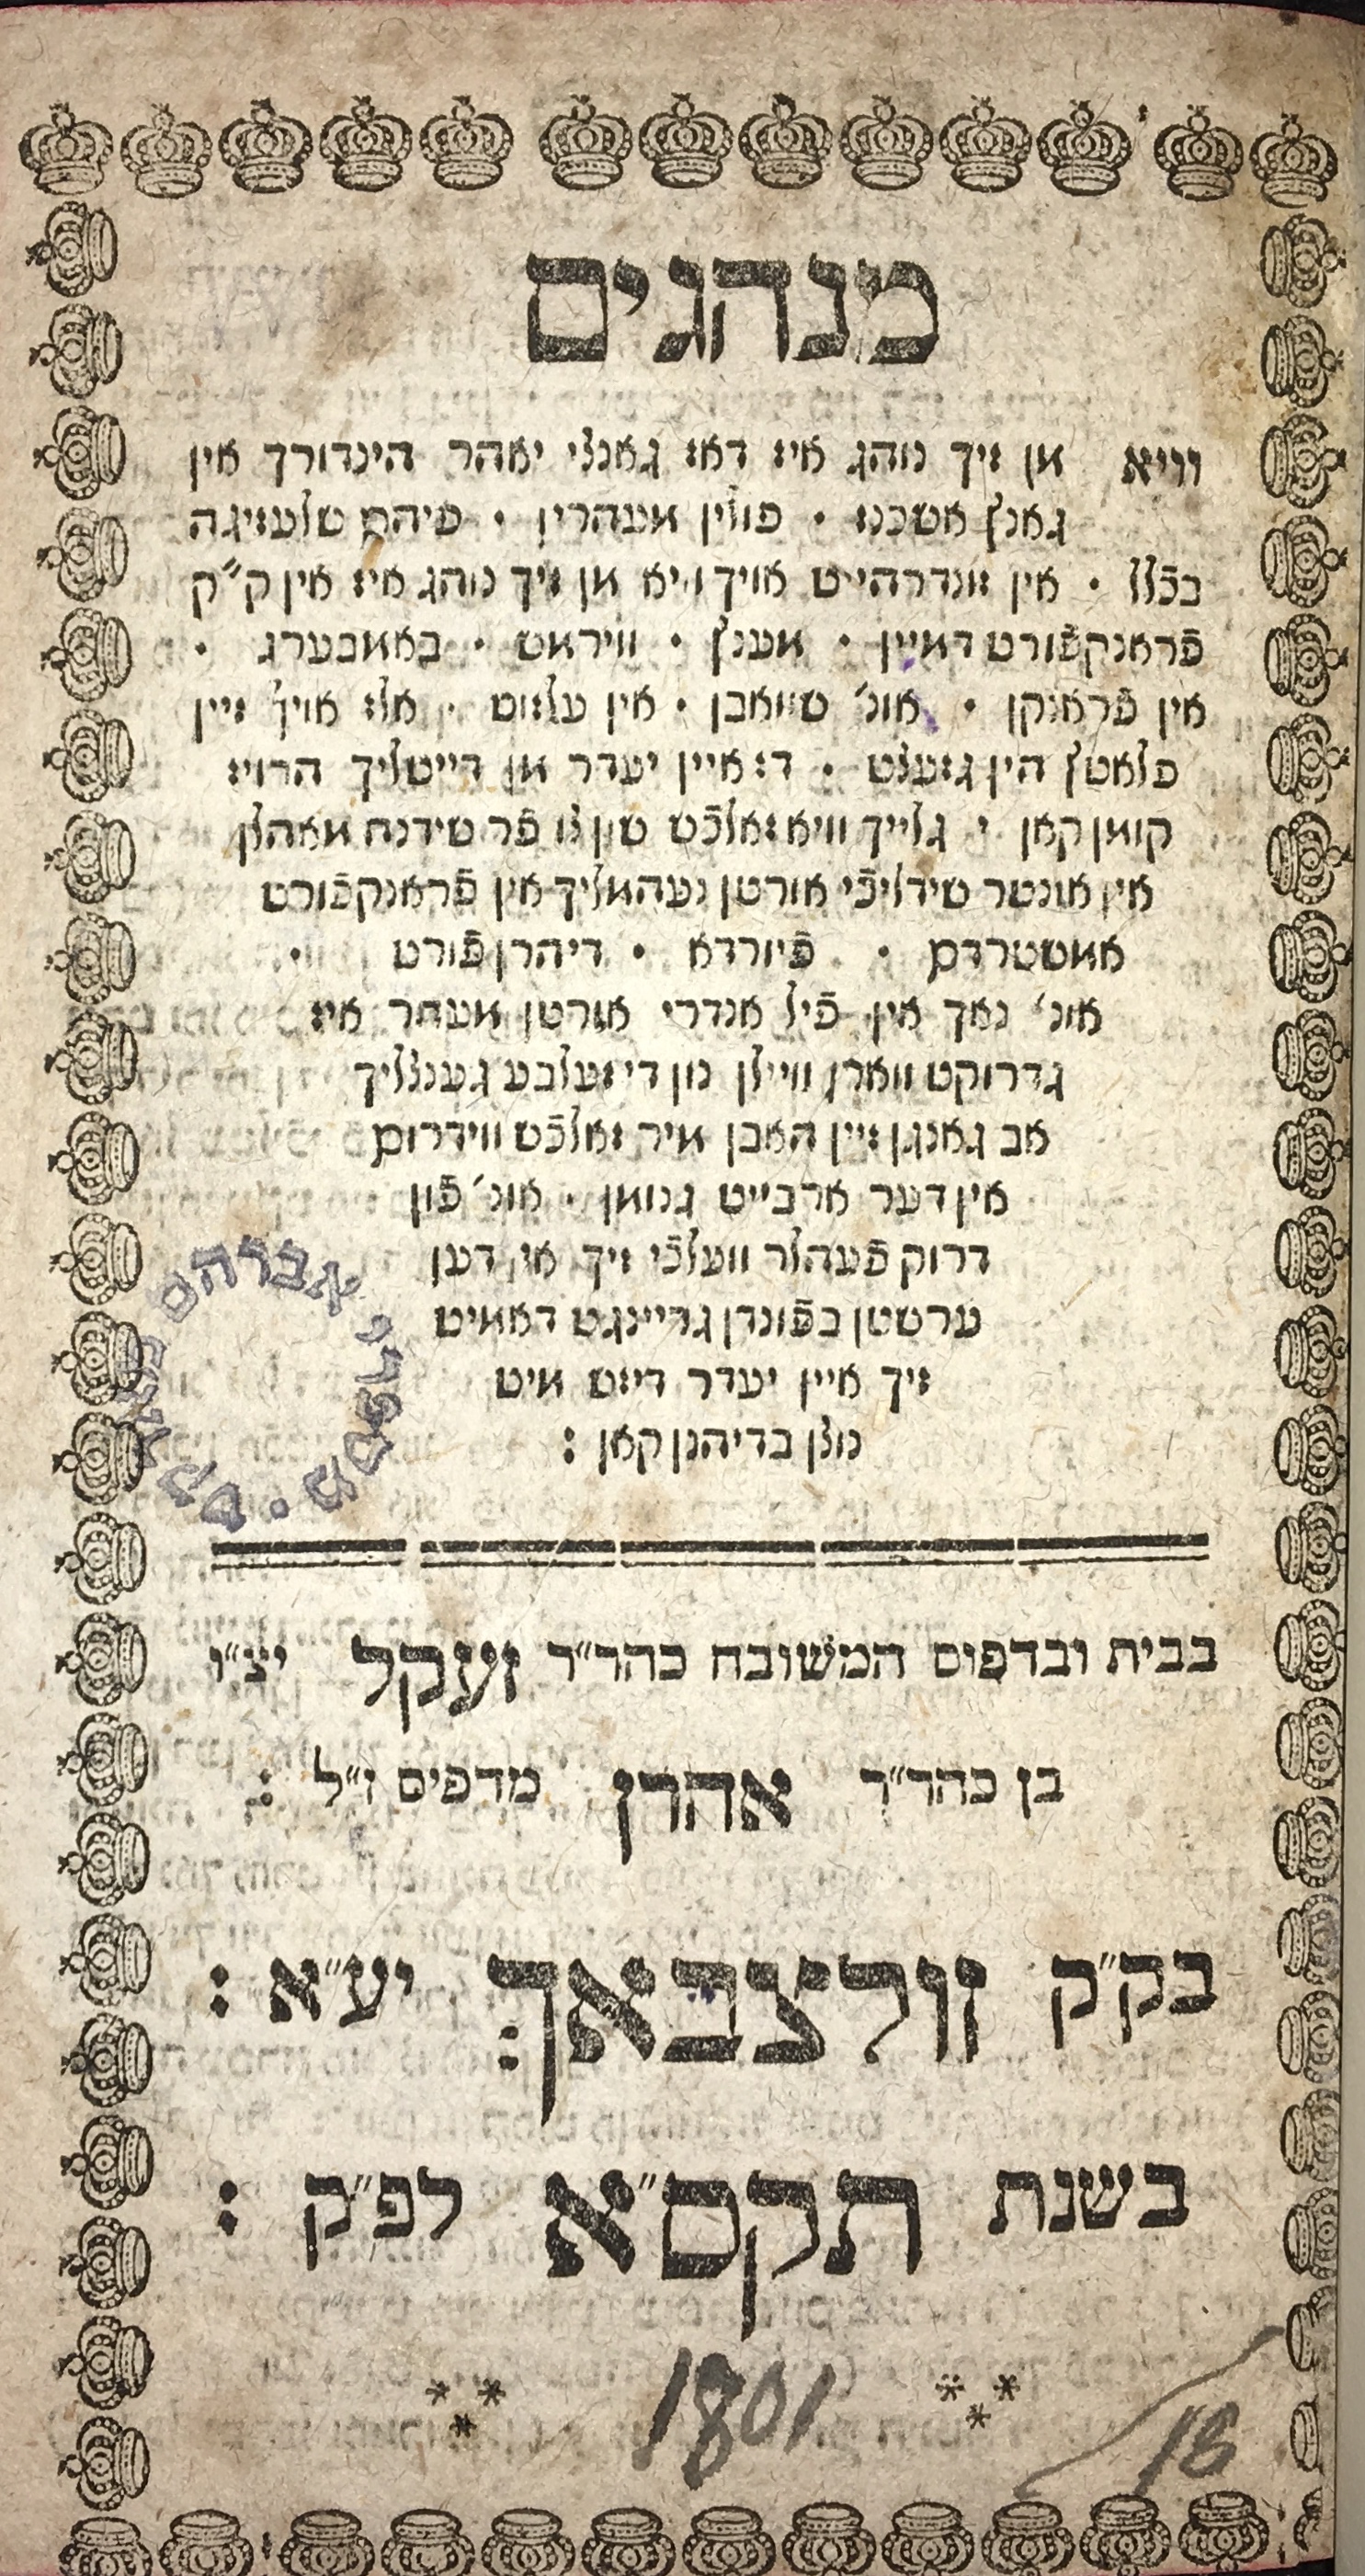 מנהגים
וויא מן זיך נוהג איז דאז גאנצי יאהר הינדורך אין
גאנץ אשכנז • פולין מעהרין • פיהם שלעזיגה
בכֿלל • אין זונדרהייט אויך וויא מן זיך נוהג איז אין ק״ק
פֿראנקפֿורט דמיין • מענץ • ווירמש • באמבערג •
אין פֿראנקן • אונ׳ שוואבן • אין עלזוס • אלז אויף זיין
פלאטץ הין גזעצט • דז איין יעדר מן דייטליך הרויז
קומן קאן • גלייך וויא זאלכֿט שון צו פֿר שידנה מאהלן
אין אונטר שידליכֿי אורטן נעהמליך אין פֿראנקפֿורט
אמשטרדם • פֿיורדא • דיהרן פֿורט •
אונ׳ נאך אין פֿיל אנדרי אורטן מעהר איז
גדרוקט ווארן ווײלן נון דיזעלבע גענצליך
אב גאנגן זיין האבן מיר זאלכֿט ווידרום
אין דער ארבייט גנומן • אונ׳ פֿון
דרוק פֿעהלר וועלכֿי זיך אן דען
ערשטן בפֿונדן גרייניגט דאמיט
זיך איין יעדר דיזס מיט
נוצן בדיהנן קאן :
בבית ובדפוס המשובח כהר״ר זעקל יצ״ו
בן כהר״ר אהרן מדפיס ז״ל :
בק״ק זולצבאך : יע״א :
בשנת תקס״א לפ״ק :
* * * 1801 * * *
18
אברהם